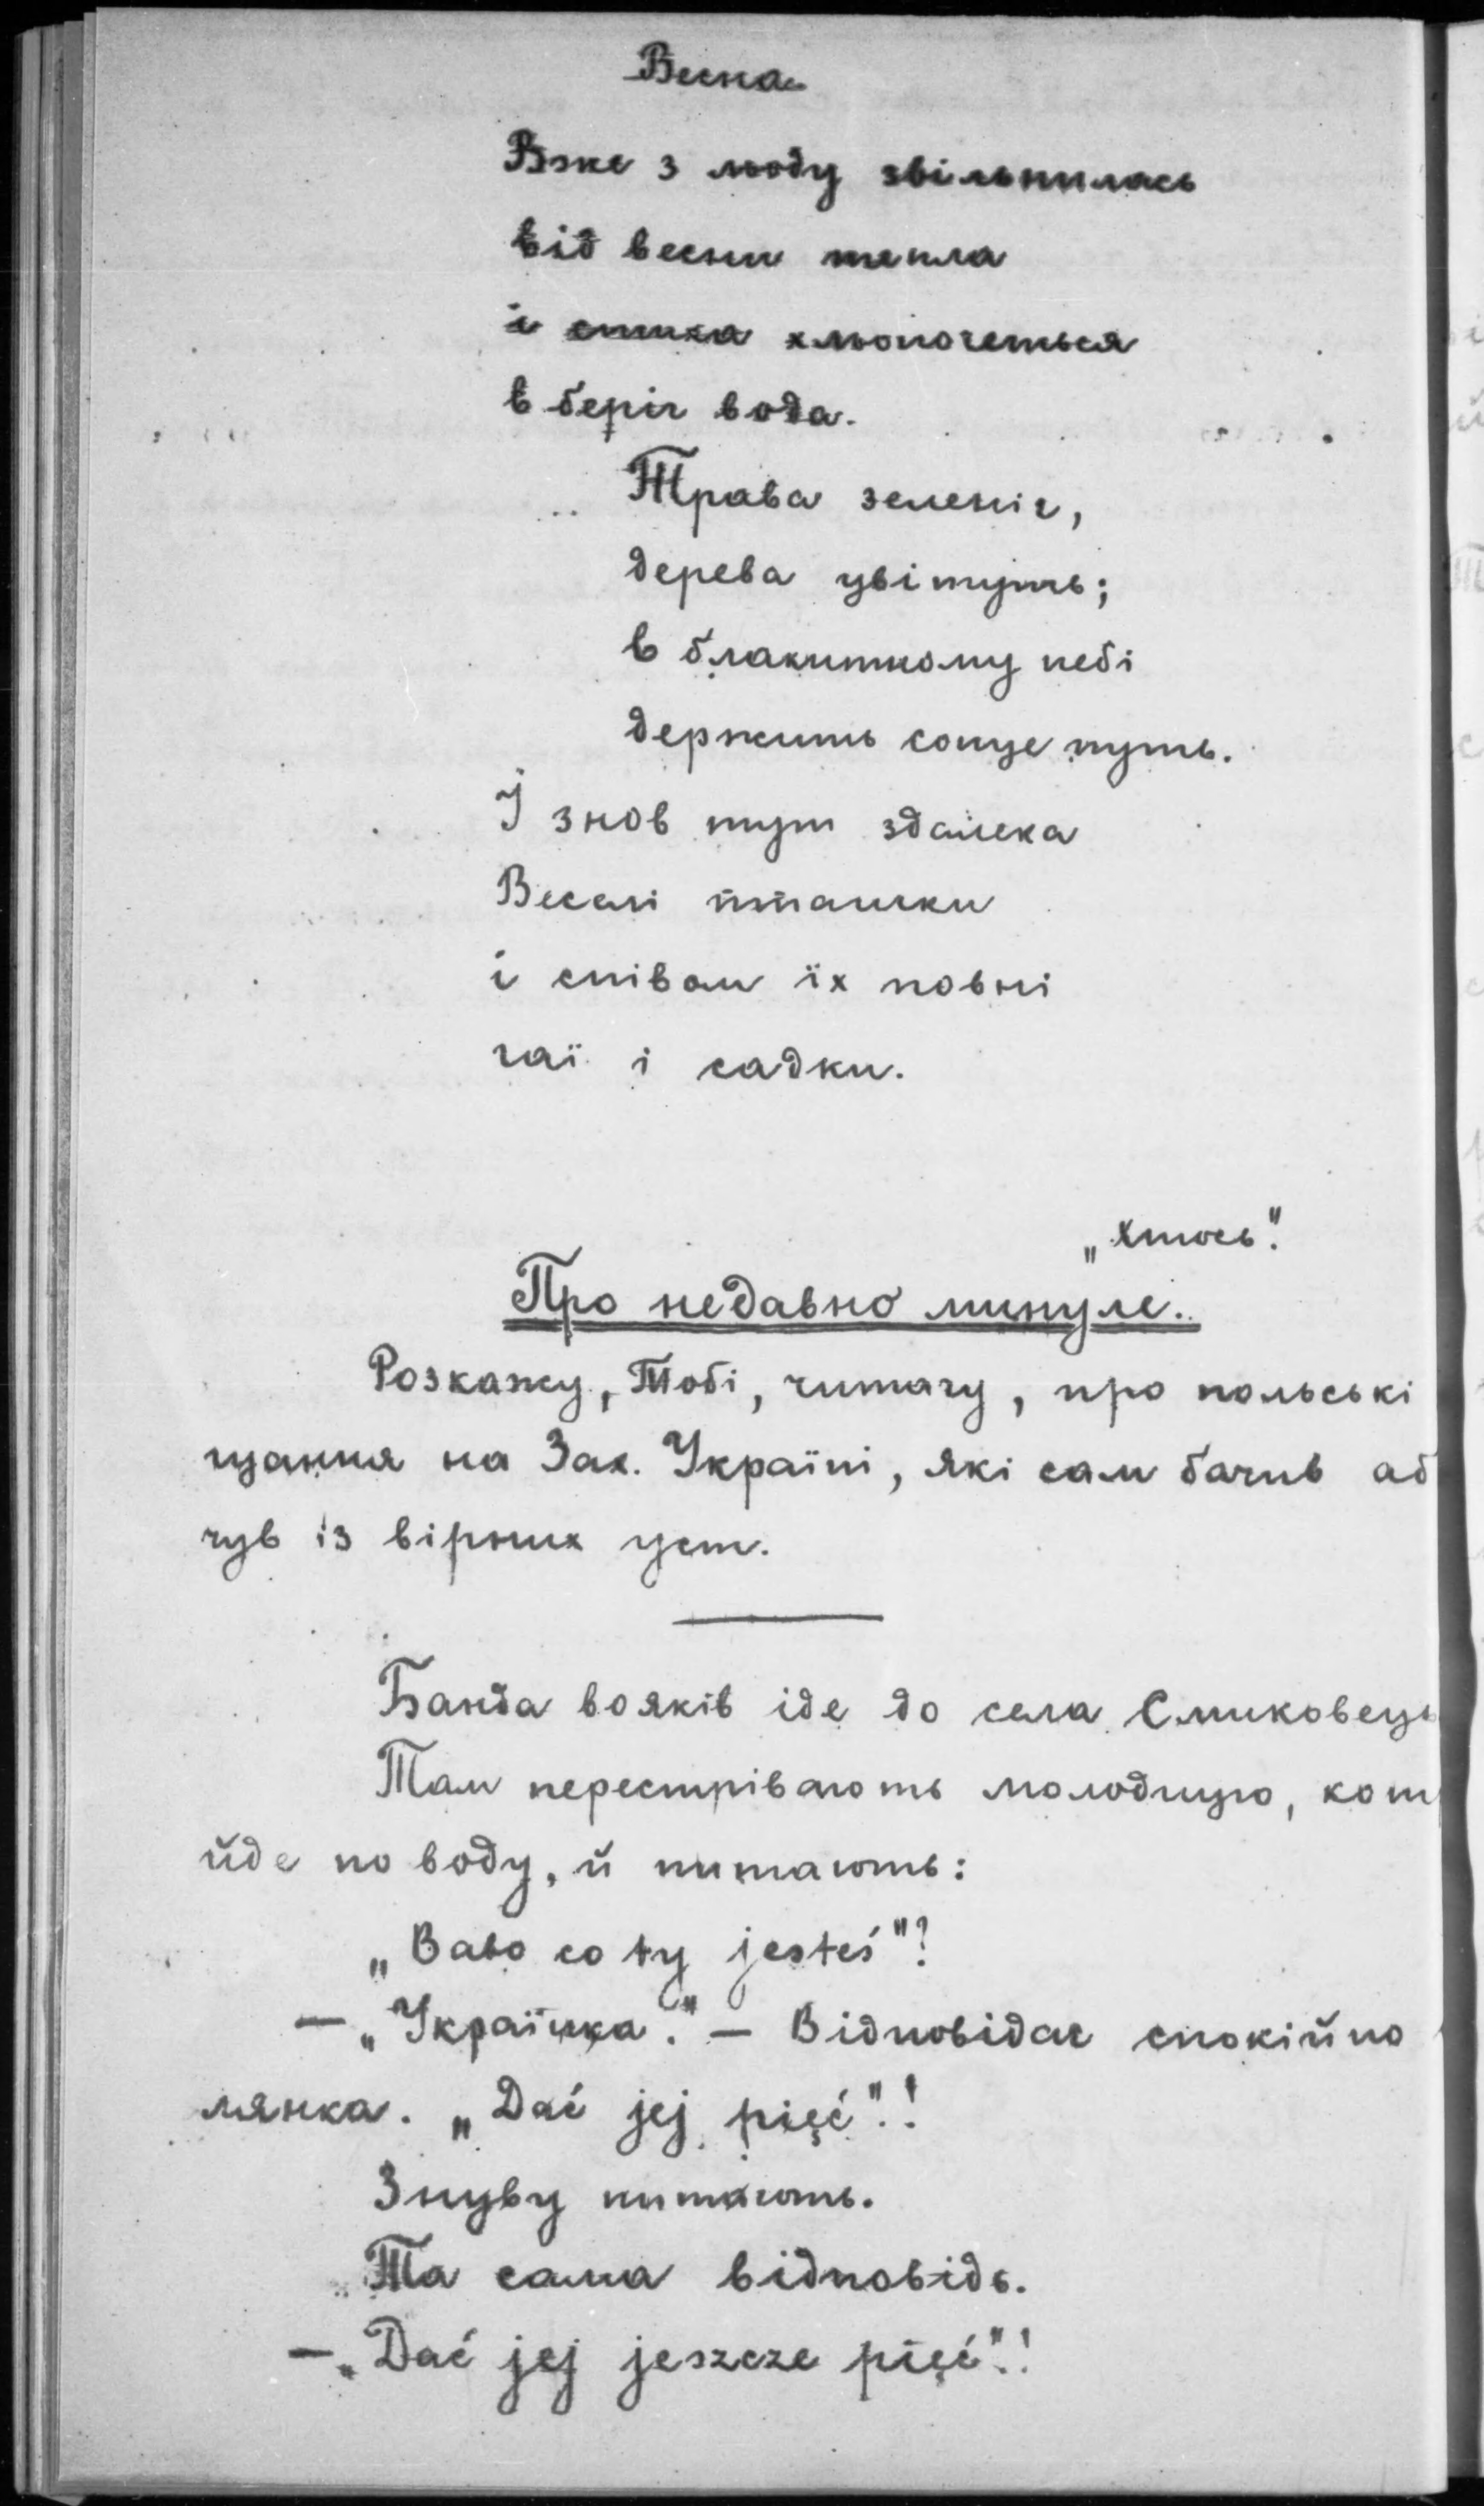 Весна
Вже з льоду звільнилась
від весни тепла
і стиха хлюпочеться
в беріг вода.
Трава зеленіє,
дерева цвітуть;
в блакитному небі
держить сонце путь.
І знов тут здалека
Веселі пташки
і співом їх повні
гаї і садки.
„Хтось".
Про недавно минуле.
Розкажу, Тобі, читачу, про польські
щання на Зах. Україні, які сам бачив аб
чув із вірних уст.
Банда вояків іде до села Смиковець
Там перестрівають молодицю, кот
йде по воду, й питають:
„Babo co ty jesteś"?
— „Українка." — Відповідає спокійно
лянка. „Dać jej pięć"!
Знуву питають.
Та сама відповідь.
— „Dać jej jeszcze pięć"!